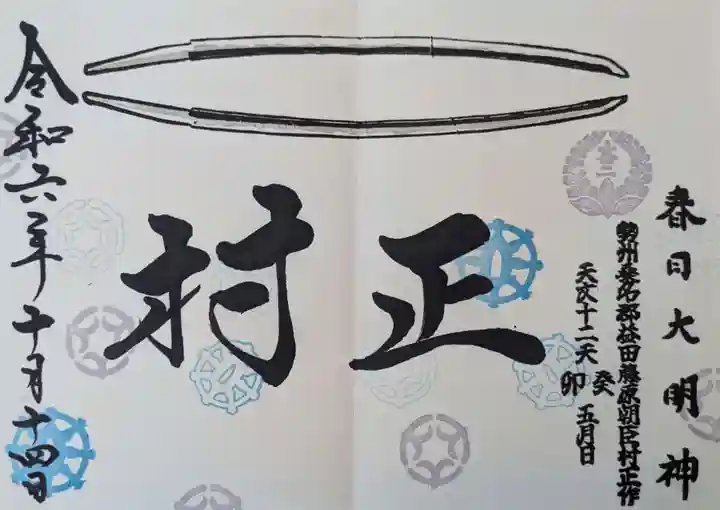 春日大明神
勢州桑名郡益田藤原朝臣村正作
天文十二天癸卯五月日
村正
令和六年十月十四日